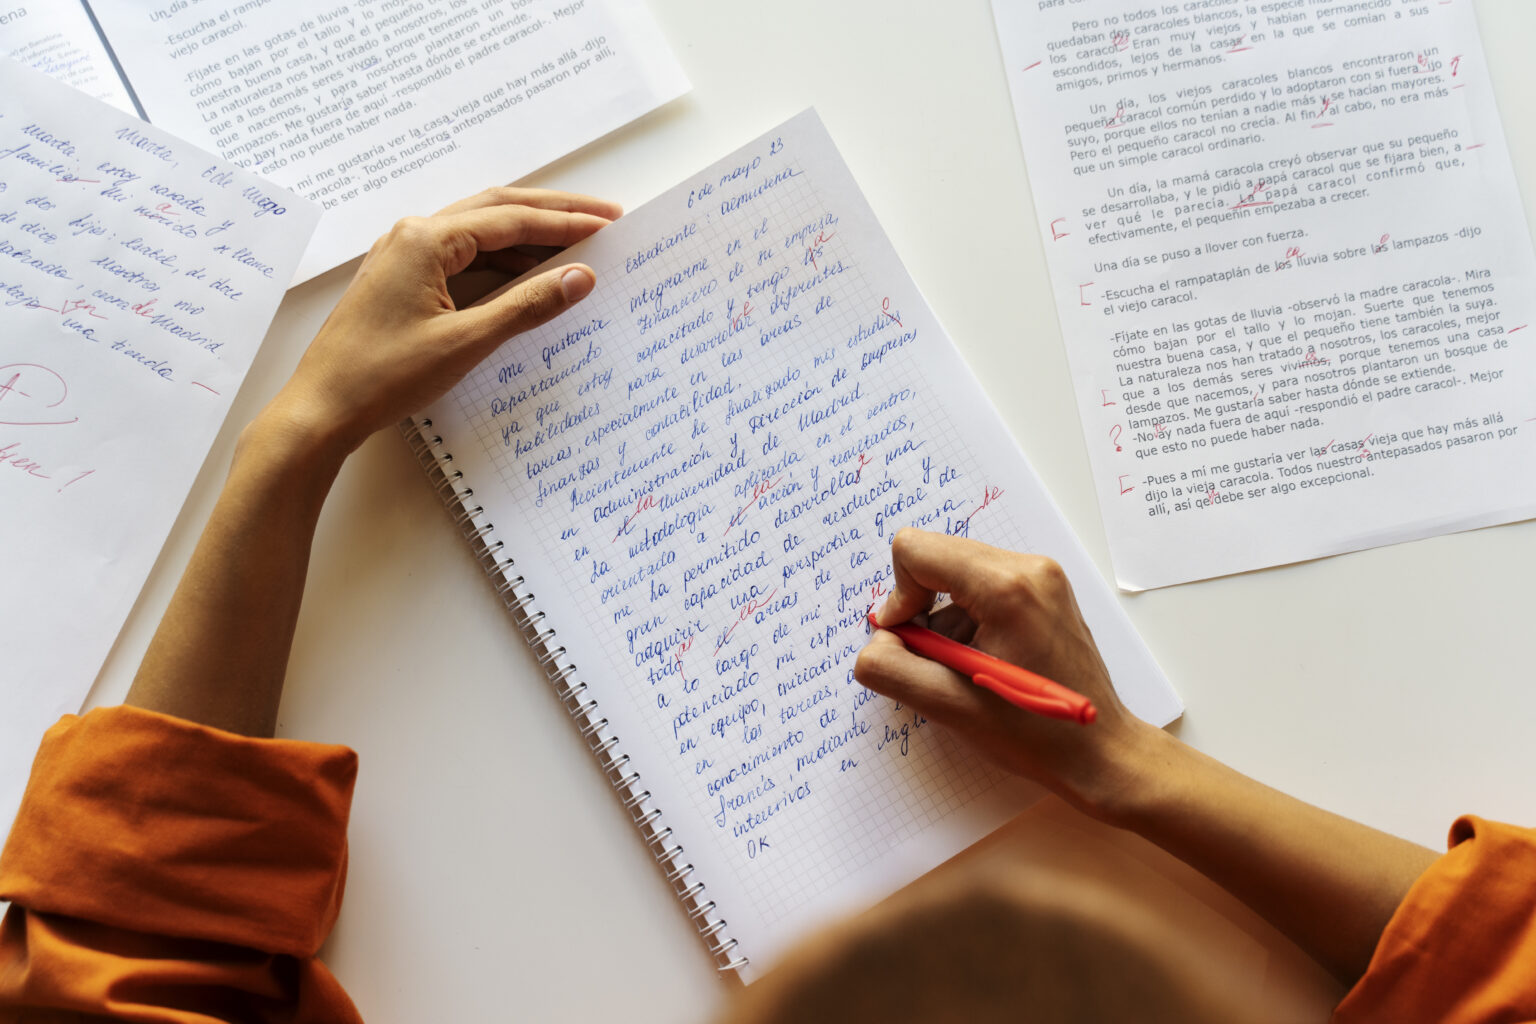 Un día se
-Escucha el rampata
viejo caracol.
-Fíjate en las gotas de lluvia -obs
cómo bajan por el tallo y lo mojan.
nuestra buena casa, y que el pequeño tien
La naturaleza nos han tratado a nosotros, los
que a los demás seres vivos, porque tenemos una
que nacemos, y para nosotros plantaron un bosq
lampazos. Me gustaría saber hasta dónde se extiende.
No hay nada fuera de aquí -respondió el padre caracol-. Mejor
esto no puede haber nada.
a mí me gustaría ver la casa vieja que hay más allá -dijo
caracola-. Todos nuestros antepasados pasaron por allí,
be ser algo excepcional.
Marta, 6 de Mayo
Marta; estoy casada y
familia Mi marido se llama
dos hijos: Isabel, de doce
de dice
Nosotros
cerca de Madrid.
en una tienda
A-
Bien!
6 de mayo 23
Estudiante: Almudena
Me gustaría integrarme en el
Departamento Financiero de su empresa,
ya que estoy capacitado y tengo las a
habilidades para desarrobar diferentes
tareas, especialmente en las áreas de
finanzas y contabilidad.
Recientemente he finalizado mis estudios o
en administración y Dirección de empresas
en el la Universidad de Madrid.
La metodología aplicada en el centro,
orientada a el la acción y resultados,
me ha permitido desarrollar r una
gran capacidad de resolución y
adquirir una perspectiva global de
todo as el la áreas de la empresa.
a lo largo de mi formac hoy he
potenciado mi espiritu u
en equipo, iniciativa
en las tareas,
conocimiento de idi
francés, mediante
intererivos en Ingl
OK
para co
Pero no todos los caracoles
quedaban dos caracoles blancos, la especie más
los caracol es Eran muy viejos y habían permanecido
escondidos, lejos de la casas en la que se comían a sus
amigos, primos y hermanos.
Un día, los viejos caracoles blancos encontraron un
pequeña caracol común perdido y lo adoptaron con si fuera ijo ?
suyo, porque ellos no tenían a nadie más y se hacían mayores.
Pero el pequeño caracol no crecía. Al fin y al cabo, no era más
que un simple caracol ordinario.
Un día, la mamá caracola creyó observar que su pequeño
se desarrollaba, y le pidió a papá caracol que se fijara bien, a
ver qué le parecía. La papá caracol confirmó que,
efectivamente, el pequeñín empezaba a crecer.
Una día se puso a llover con fuerza.
-Escucha el rampataplán de los la lluvia sobre las o lampazos -dijo
el viejo caracol.
-Fíjate en las gotas de lluvia -observó la madre caracola-. Mira
cómo bajan por el tallo y lo mojan. Suerte que tenemos
nuestra buena casa, y que el pequeño tiene también la suya.
La naturaleza nos han tratado a nosotros, los caracoles, mejor
que a los demás seres vivimos, porque tenemos una casa
desde que nacemos, y para nosotros plantaron un bosque de
lampazos. Me gustaría saber hasta dónde se extiende.
? -No ay nada fuera de aquí -respondió el padre caracol-. Mejor
que esto no puede haber nada.
-Pues a mí me gustaría ver las casas vieja que hay más allá
dijo la vieja caracola. Todos nuestro s antepasados pasaron por
allí, así qe debe ser algo excepcional.